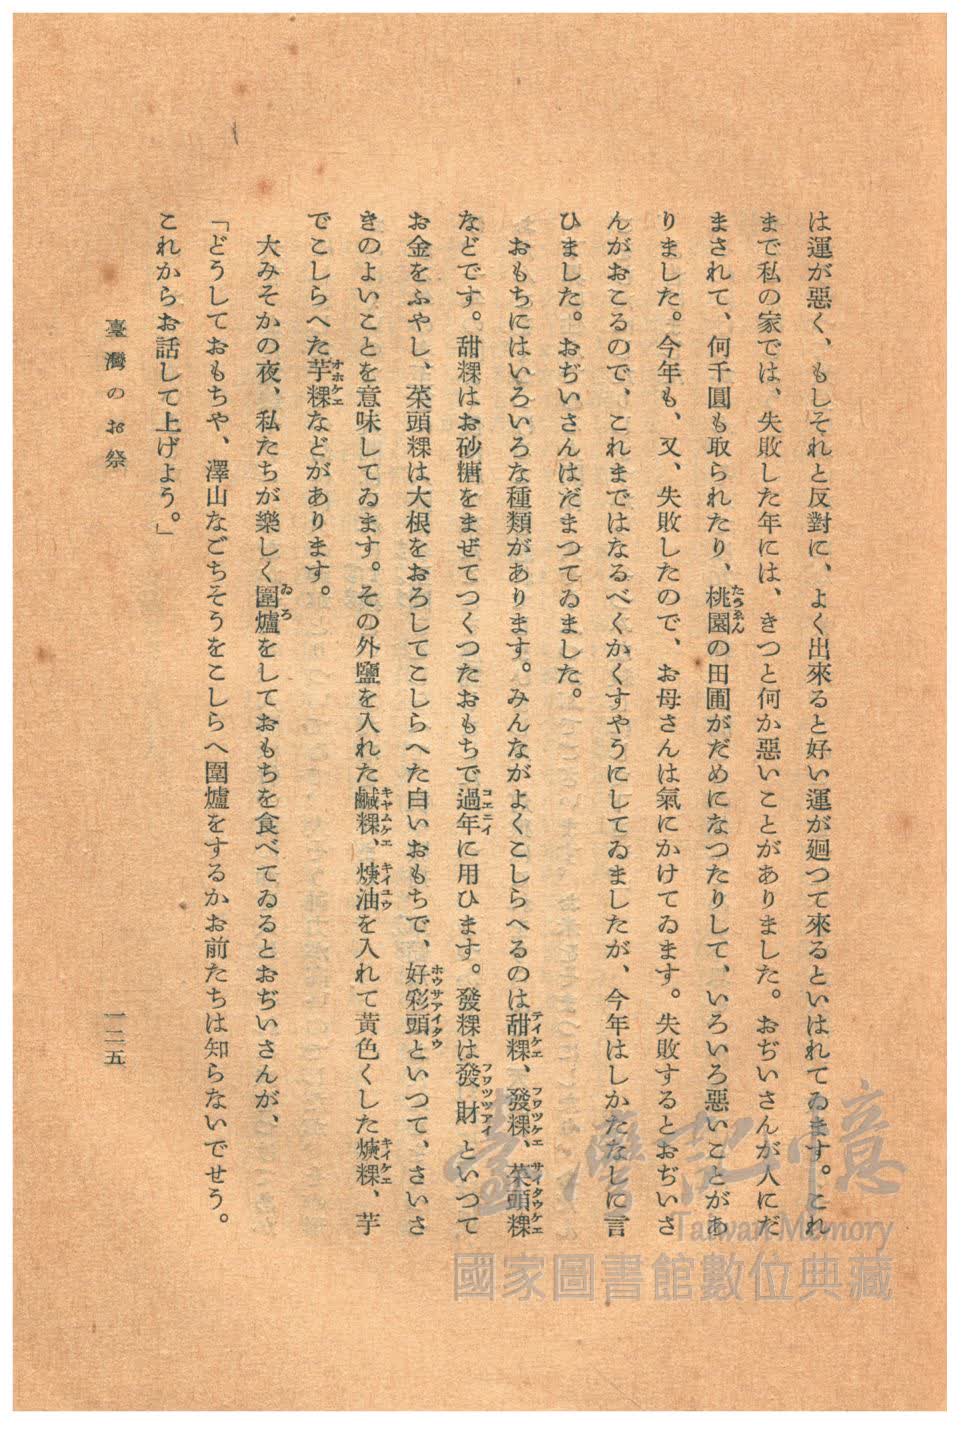 は運が惡く、もしそれと反對に、よく出來ると好い運が廻つて來るといはれてゐます。これ
まで私の家では、失敗した年には、きつと何か惡いことがありました。おぢいさんが人にだ
まされて、何千圓も取られたり、桃園の田圃がだめになつたりして、いろいろ惡いことがあ
りました。今年も、又、失敗したので、お母さんは氣にかけてゐます。失敗するとおぢいさ
んがおこるので、これまではなるべくかくすやうにしてゐましたが、今年はしかたなしに言
ひました。おぢいさんはだまつてゐました。
おもちにはいろいろな種類があります。みんながよくこしらへるのは甜粿、發粿、菜頭粿
などです。甜粿はお砂糖をまぜてつくつたおもちで過年に用ひます。發粿は發財といつて
お金をふやし、菜頭粿は大根をおろしてこしらへた白いおもちで、好彩頭といつて、さいさ
きのよいことを意味してゐます。その外鹽を入れた鹹粿、𤆬油を入れて黃色くした𤆬粿、芋
でこしらへた芋粿などがあります。
大みそかの夜、私たちが樂しく圍爐をしておもちを食べてゐるとおぢいさんが、
「どうしておもちや、澤山なごちそうをこしらへ圍爐をするかお前たちは知らないでせう。
これからお話して上げよう。」
臺灣のお祭
一二五
臺灣記憶
Taiwan Memory
國家圖書館數位典藏